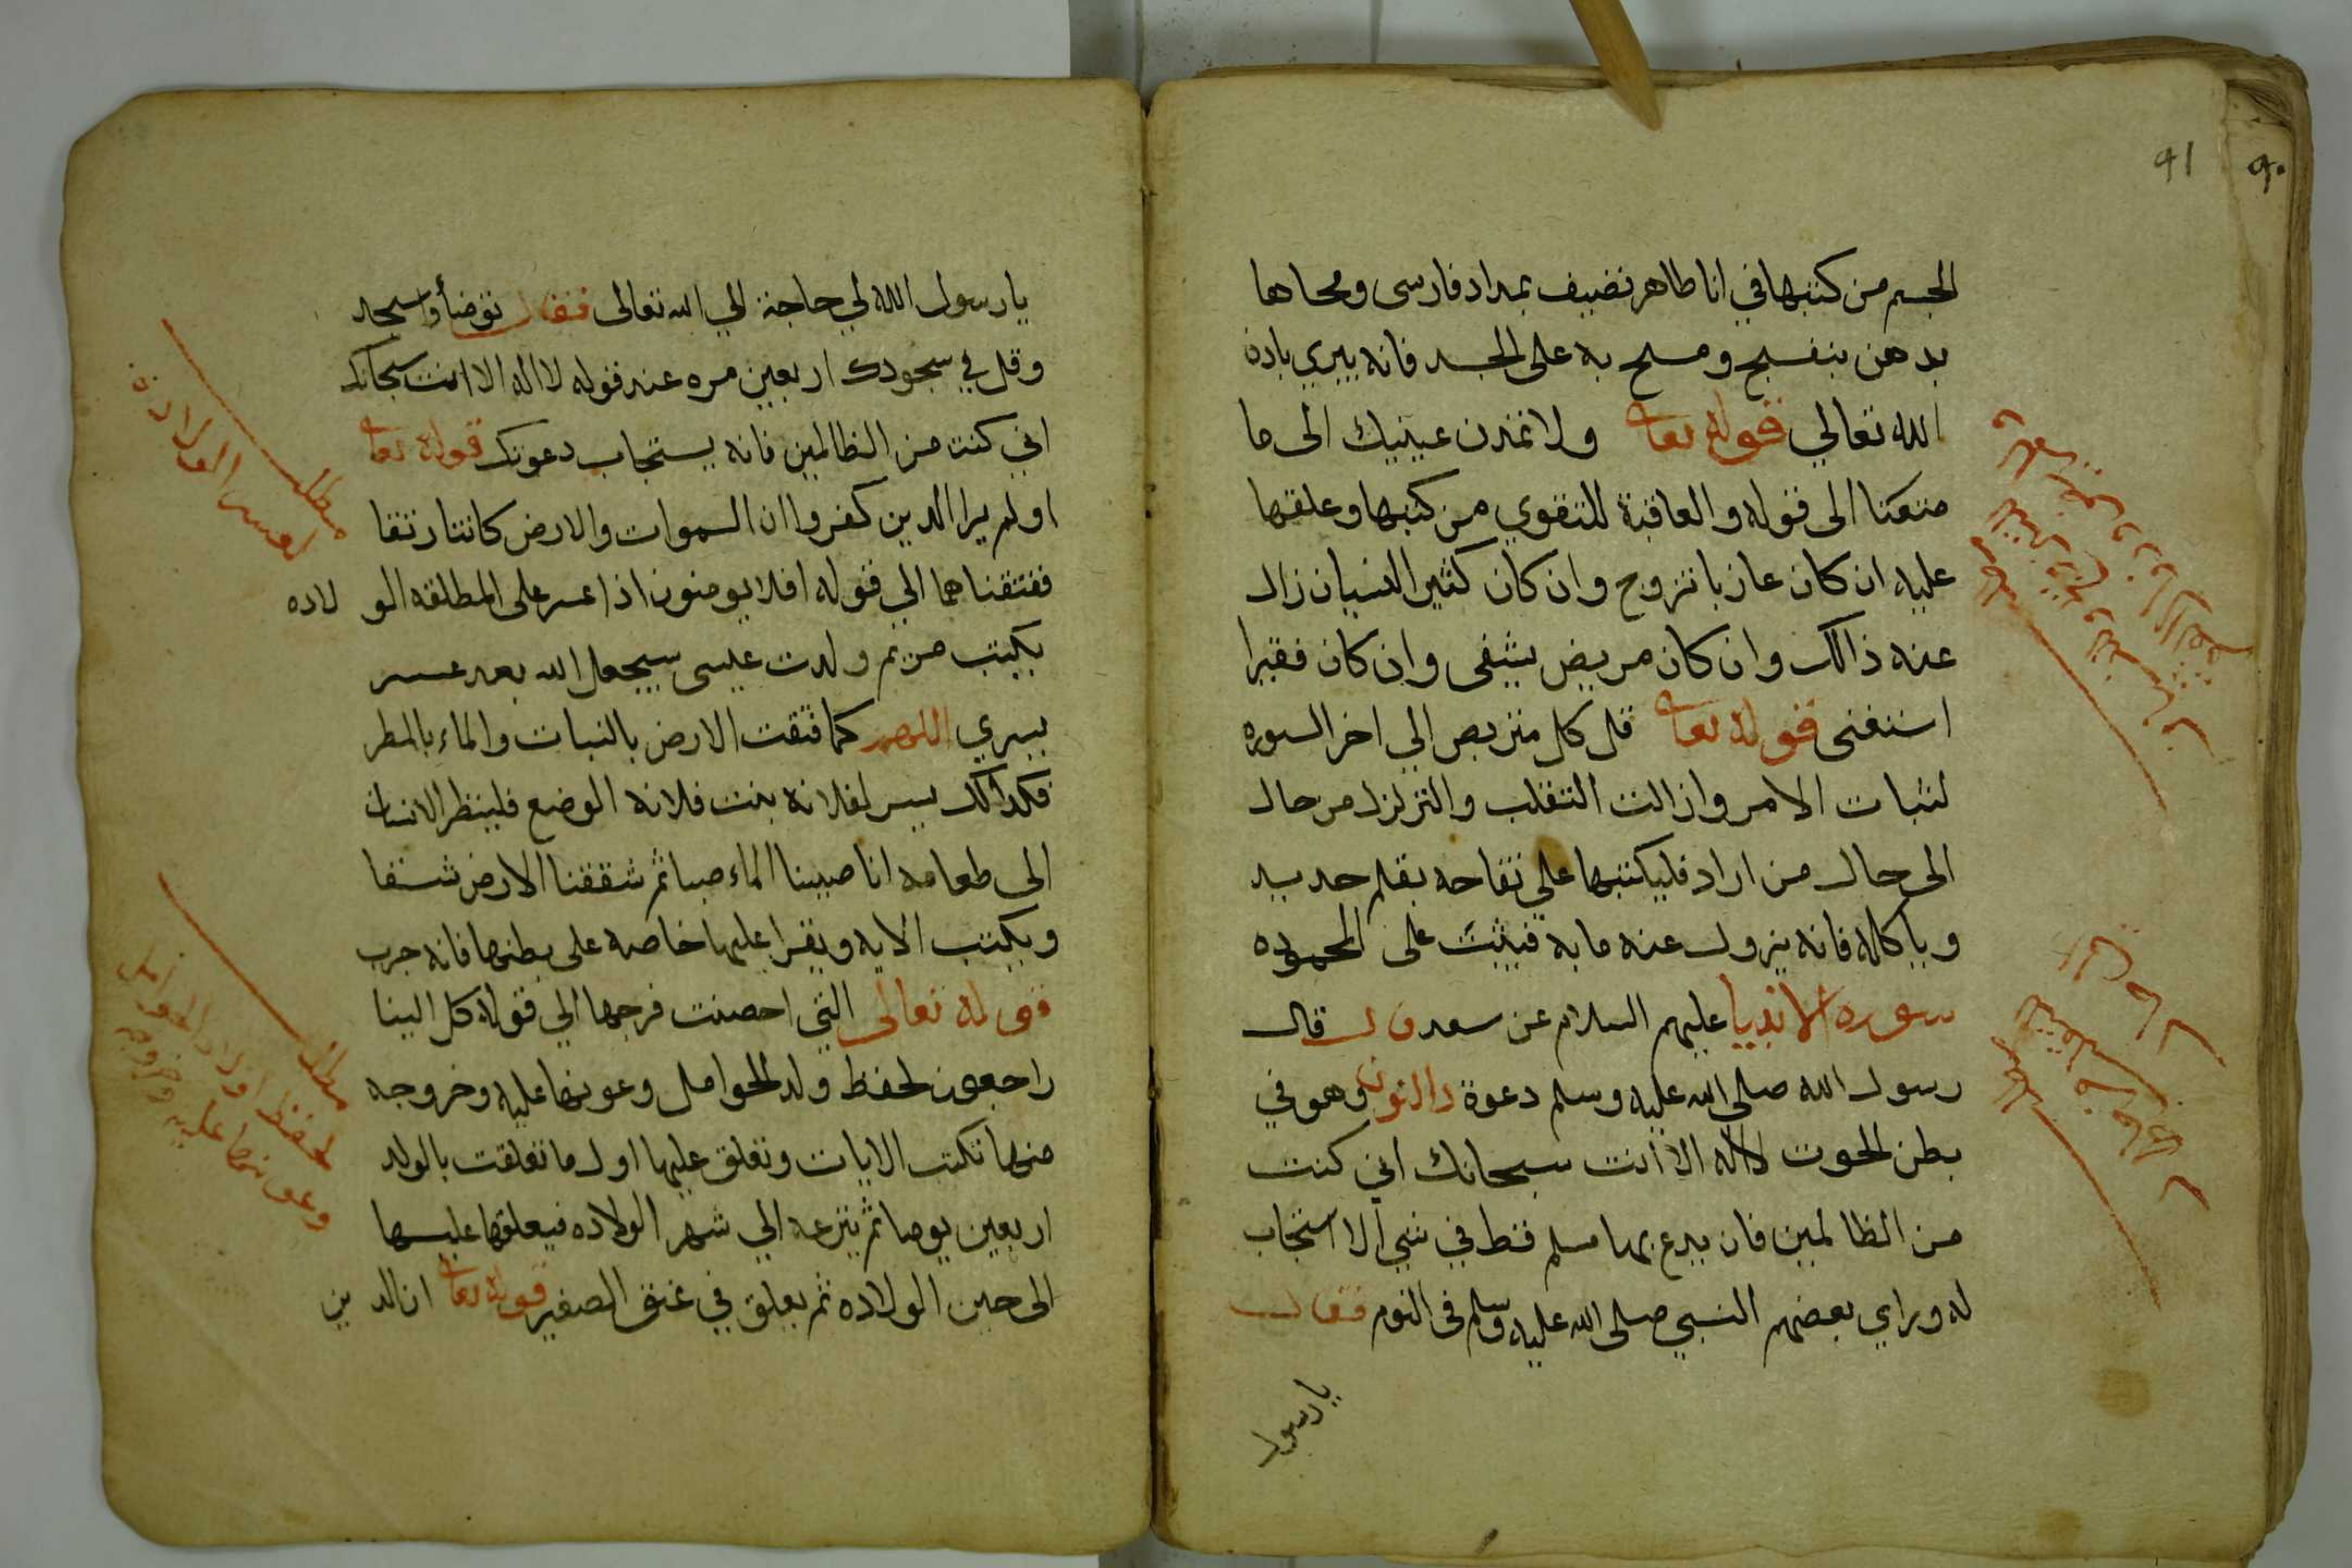 ٩١
٩٠
الجسم من كتبها في انا طاهر نضيف بمداد فارسى ومحاها
بدهن بنفسج ومسح به على الجسد فانه يبري باذن
الله تعالي قوله تعا ولا تمدن عينيك الى ما
متعنا الى قوله والعاقبة للتقوي من كتبها وعلقها
عليه ان كان عازبا تزوج وان كان كثير النسيان زال
عنه ذالك وان كان مريض يشفى وان كان فقيرا
استغنى قوله تعا قل كل متربص الي اخر السوره
لثبات الامر وازالت التقلب والتزلزل من حال
الى حال من اراد فليكتبها علي تفاحه بقلم حديد
وياكله فانه يزول عنه ما به فيثبت على المحموده
سورة الانبيا عليهم السلام عن سعد قال قال
رسول الله صلى الله عليه وسلم دعوة ذا النون وهو في
بطن الحوت لااله الا انت سبحانك اني كنت
من الظالمين فان يدع بها مسلم قط في شي الا استجاب
له وراي بعضهم النبي صلى الله عليه وسلم في النوم فقال
يارسول
يارسول الله لي حاجة الي الله تعالى فقال توضأ واسجد
وقل في سجودك اربعين مره عند قوله لااله الا انت سبحانك
اني كنت من الظالمين فانه يستجاب دعوتك قوله تعا
اولم يرا الدين كفروا ان السموات والارض كانتا رتقا
ففتقناهما الي قوله افلا يومنون اذا عسر على المطلقه الو لاده
يكتب من ثم ولدت عيسى سيجعل الله بعد عسر
يسري اللهم كما فتقت الارض بالنبات والماء بالمطر
فكذالك يسر لفلانه بنت فلانه الوضع فلينظر الانسان
الى طعامه انا صببنا الماء صبا ثم شققنا الارض شقا
ويكتب الايه ويقرا عليها خاصه على بطنها فانه جرب
قوله تعالى التي احصنت فرجها الي قوله كل الينا
راجعون لحفظ ولد الحوامل وعونها عليه وخروجه
منها تكتب الايات وتعلق عليها اول ما تعلقت بالولد
اربعين يوما ثم ينزعه الي شهر الولاده فيعلقها عليها
الى حين الولاده ثم يعلق في عنق الصغير قوله تعا ان الد ين
مطلب
لعسر الولادة
مطلب
لحفظ اولاد الحوامل
وعونها عليه وخروجه